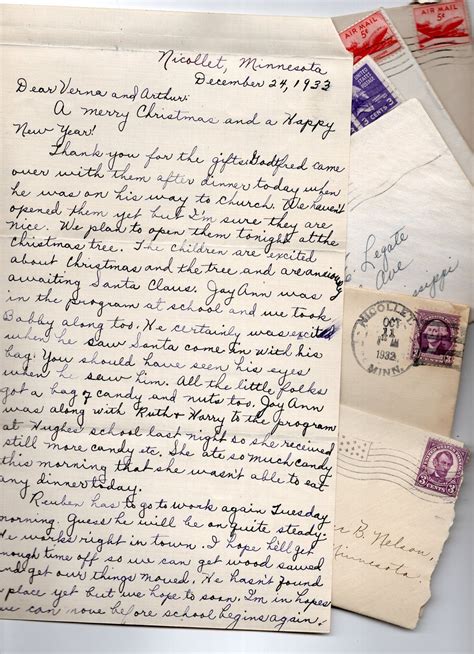 Nicollet, Minnesota
December 24, 1933
Dear Verna and Arthur:
A merry Christmas and a Happy
New Year!
Thank you for the gifts. Godtfred came
over with them after dinner today when
he was on his way to church. We haven't
opened them yet but I'm sure they are
nice. We plan to open them tonight at the
Christmas tree. The children are excited
about Christmas and the tree and are anxiously
awaiting Santa Claus. Joy Ann was
in the program at school and we took
Bobby along too. He certainly was excited
when he saw Santa come in with his
bag. You should have seen his eyes
when he saw him. All the little folks
got a bag of candy and nuts too. Joy Ann
was along with Ruth & Harry to the program
at Hughes school last night so she received
still more candy etc. She ate so much candy
this morning that she wasn't able to eat
any dinner today.
Reuben has to go to work again Tuesday
morning. Guess he will be on quite steady.
He works right in town. I hope he'll get
enough time off so we can get wood sawed
and get our things moved. He hasn't found
a place yet but we hope to soon. I'm in hopes
we can move before school begins again.
AIR MAIL
5¢
AIR MAIL
5¢
3
Legate
Ave
issippi
NICOLLET
OCT
1932
MINN.
3
3 CENTS 3
B. Nelson,
Minnesota.